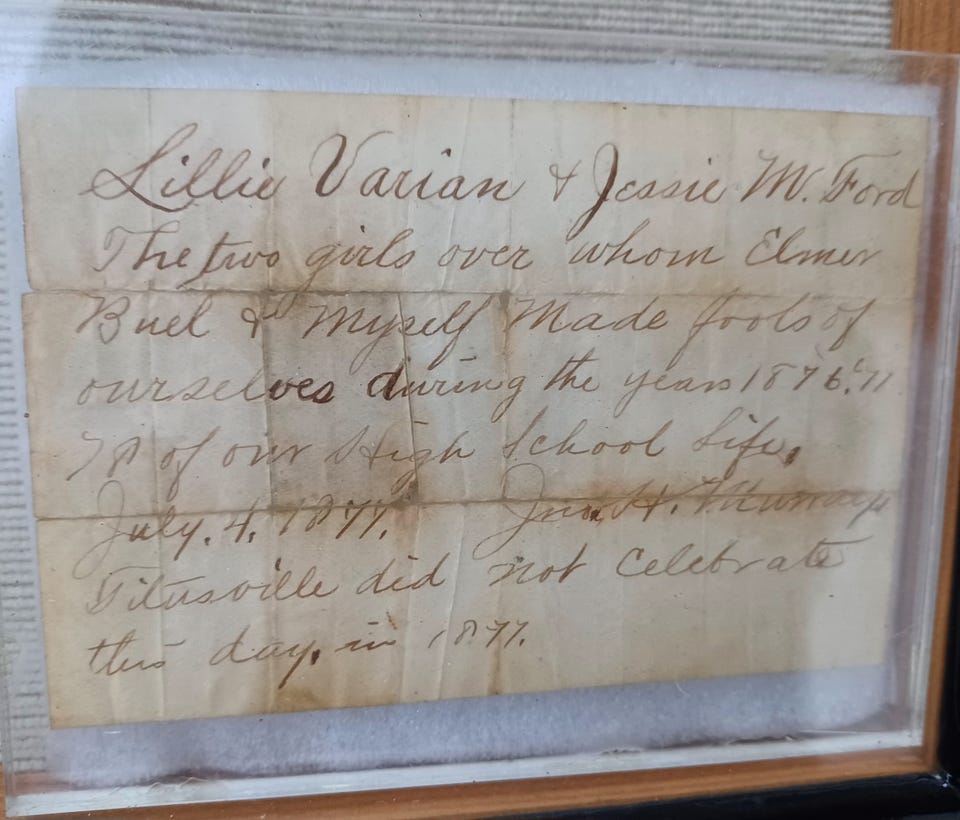 Lillie Varian & Jessie M. Ford
The two girls over whom Elmer
Buel & Myself Made fools of
ourselves during the years 1876.'77
78 of our High School Life.
July. 4. 1877. Jno. H.
Titusville did not Celebrate
this day. in 1877.